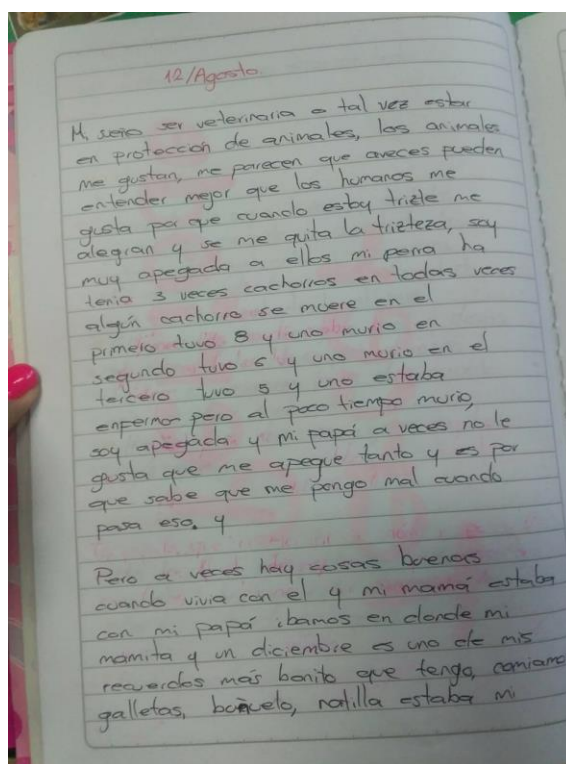 12/Agosto.
M, seria ser veterinaria o tal vez estar
en protección de animales, los animales
me gustan, me parecen que aveces pueden
entender mejor que los humanos me
gusta por que cuando estoy trizte me
alegran y se me quita la trizteza, soy
muy apegada a ellos mi perra ha
tenia 3 veces cachorros en todas veces
algún cachorro se muere en el
primero tuvo 8 y uno murio en
segundo tuvo 6 y uno murio en el
tercero tuvo 5 y uno estaba
enfermo pero al poco tiempo murio,
soy apegada y mi papá a veces no le
gusta que me apegue tanto y es por
que sabe que me pongo mal cuando
pasa eso. y
Pero a veces hay cosas buenas
cuando vivia con el y mi mamá estaba
con mi papá ibamos en donde mi
mamita y un diciembre es uno de mis
recuerdos más bonito que tengo, comiamo
galletas, buñuelo, natilla estaba mi